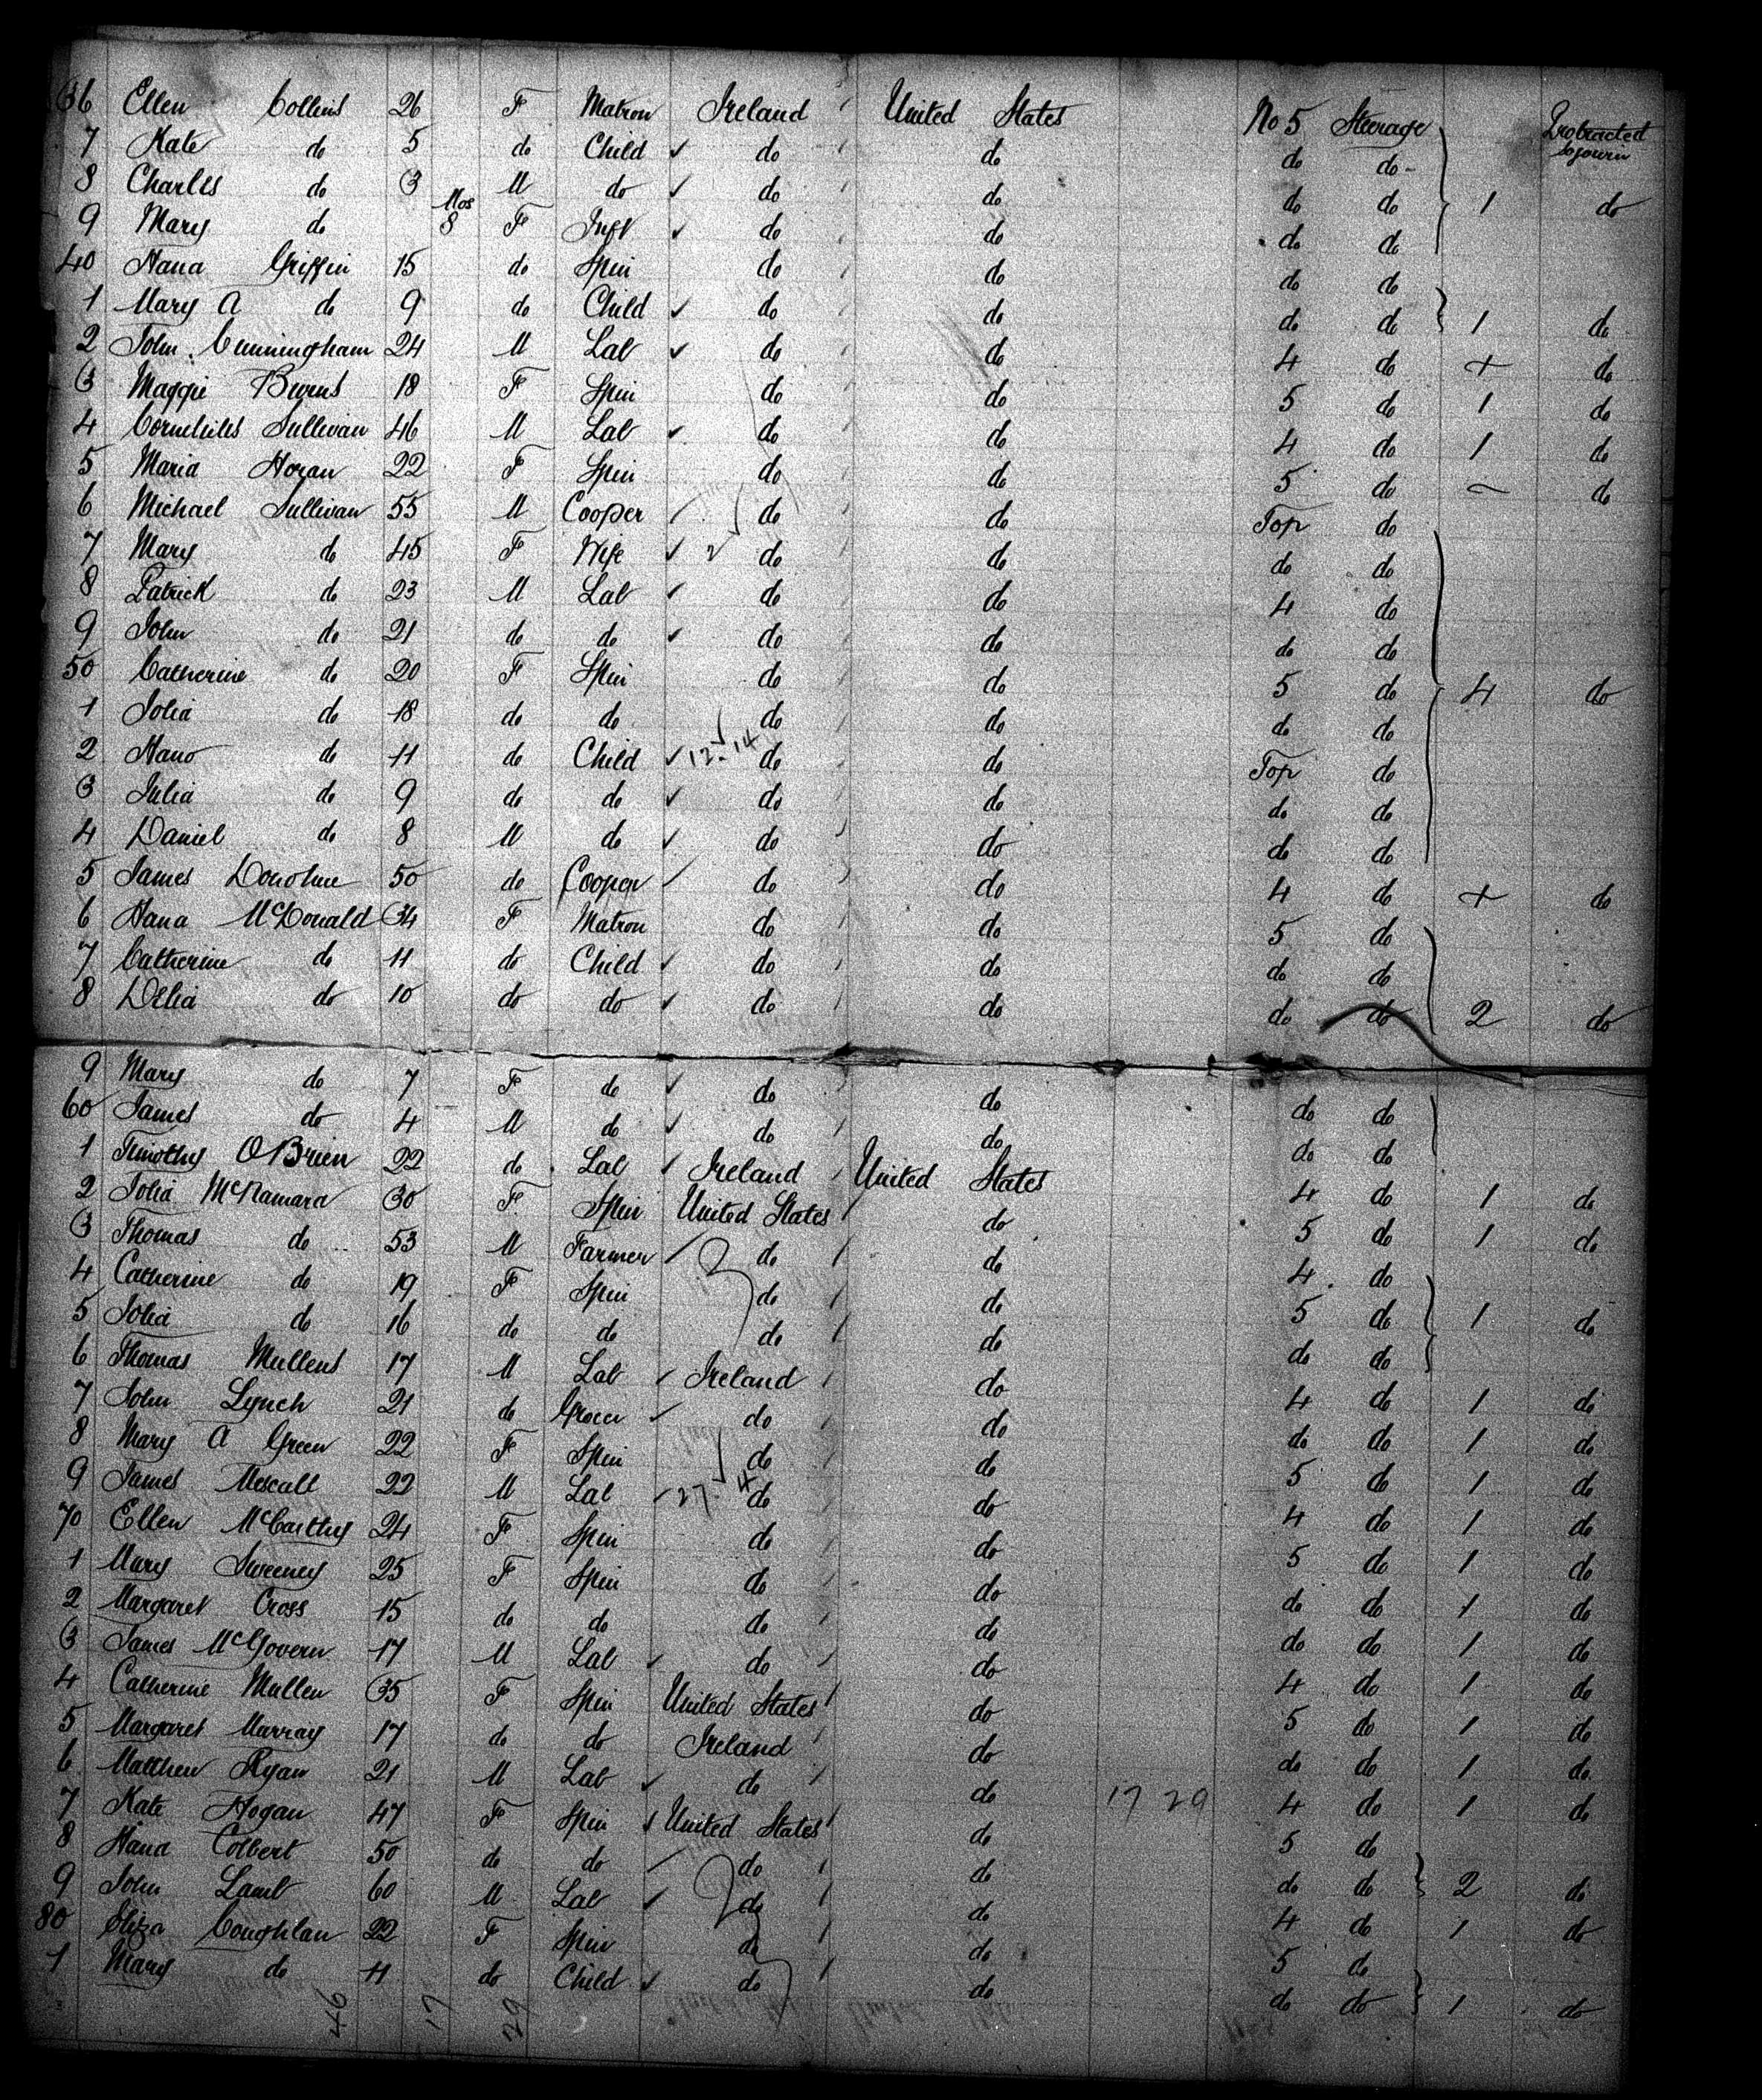 36 Ellen Collins 26 F Matron Ireland United States No 5 Steerage Protracted sojourn
7 Kate do 5 do Child ✓ do do do do
8 Charles do 3 M do ✓ do do do do 1 do
9 Mary do Mos 8 F Inft ✓ do do do do
40 Hana Griffin 15 do Spin do do do do
1 Mary A do 9 do Child ✓ do do do do 1 do
2 John Cunningham 24 M Lab ✓ do do 4 do + do
3 Maggie Burns 18 F Spin do do 5 do 1 do
4 Cornelius Sullivan 46 M Lab ✓ do do 4 do 1 do
5 Maria Horan 22 F Spin do do 5 do do
6 Michael Sullivan 55 M Cooper ✓ do do Top do
7 Mary do 45 F Wife ✓ 2 do do do do
8 Patrick do 23 M Lab ✓ do do 4 do
9 John do 21 do do ✓ do do do do
50 Catherine do 20 F Spin do do 5 do 4 do
1 Joha do 18 do do do do do do
2 Hano do 11 do Child ✓ 12.14 do do Top do
3 Julia do 9 do do ✓ do do do do
4 Daniel do 8 M do ✓ do do do do
5 James Donohue 50 do Cooper ✓ do do 4 do + do
6 Hana McDonald 34 F Matron do do 5 do
7 Catherine do 11 do Child ✓ do do do do
8 Delia do 10 do do ✓ do do do do 2 do
9 Mary do 7 F do ✓ do do do do
60 James do 4 M do ✓ do do do do
1 Timothy OBrien 22 do Lab ✓ Ireland United States 4 do 1 do
2 Johа McNamara 30 F Spin United States do 5 do 1 do
3 Thomas do 53 M Farmer ✓ do do 4 do
4 Catherine do 19 F Spin do do 5 do 1 do
5 Johа do 16 do do do do do do
6 Thomas Mullens 17 M Lab ✓ Ireland do 4 do 1 do
7 John Lynch 21 do Grocer ✓ do do do do 1 do
8 Mary A Green 22 F Spin do do 5 do 1 do
9 James Mescall 22 M Lab ✓ 27 4 do do 4 do 1 do
70 Ellen McCarthy 24 F Spin do do 5 do 1 do
1 Mary Sweeney 25 F Spin do do do do 1 do
2 Margaret Cross 15 do do do do do do 1 do
3 James McGovern 17 M Lab ✓ do do 4 do 1 do
4 Catherine Mullen 35 F Spin United States do 5 do 1 do
5 Margaret Murray 17 do do Ireland do do do 1 do
6 Matthew Ryan 21 M Lab ✓ do do 17 29 4 do 1 do
7 Kate Hogan 47 F Spin ✓ United States do 5 do
8 Hana Colbert 50 do do ✓ do do do do 2 do
9 John Lamb 60 M Lab ✓ do do 4 do 1 do
80 Eliza Coughlan 22 F Spin do do 5 do
1 Mary do 11 do Child ✓ do do do do 1 do
46 17 29